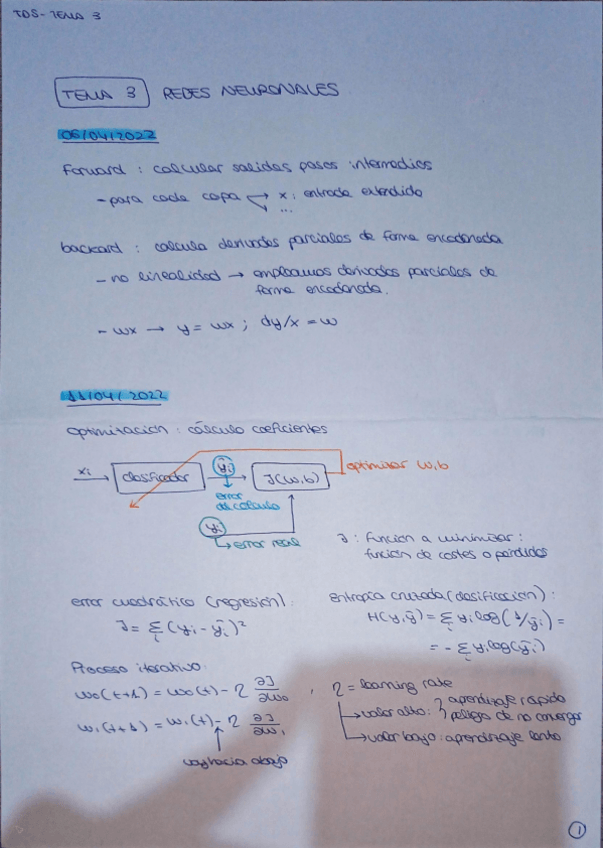 TDS - TEMA 3
TEMA 3 REDES NEURONALES
06/04/2022
Forward : calcular salidas pasos intermedios
- para cada capa → x: entrada extendida
...
backard : calcula derivadas parciales de forma encadenada
- no linealidad → empleamos derivadas parciales de
forma encadenada.
- wx → y = wx ; dy/x = w
11/04/2022
optimización : cálculo coeficientes
xi → clasificador → ŷi → J(w,b)
optimizar w,b
error
de cálculo
yi
↳ error real
J : Función a minimizar :
función de costes o pérdidas
error cuadrático (regresión) :
J = Σi (yi - ŷi)²
entropía cruzada (clasificación) :
H(y,ŷ) = Σi yi log(1/ŷi) =
= - Σi yi log(ŷi)
Proceso iterativo:
w0(t+1) = w0(t) - η ∂J/∂w0 , η = learning rate
w1(t+1) = w1(t) - η ∂J/∂w1
↳ valor alto : } aprendizaje rápido
peligro de no converger
↳ valor bajo : aprendizaje lento
voy hacia abajo
1